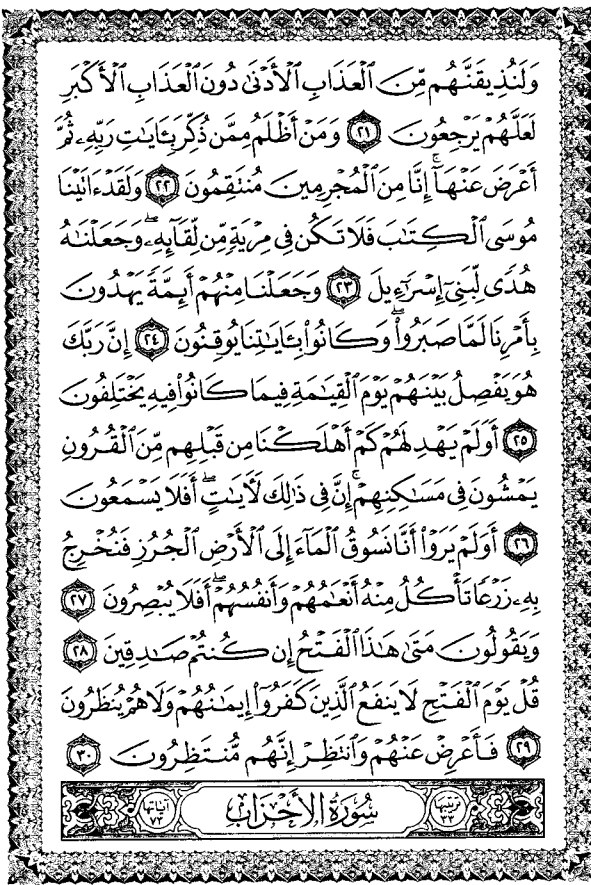 وَلَنُذِيقَنَّهُم مِّنَ ٱلْعَذَابِ ٱلْأَدْنَىٰ دُونَ ٱلْعَذَابِ ٱلْأَكْبَرِ
لَعَلَّهُمْ يَرْجِعُونَ ٢١ وَمَنْ أَظْلَمُ مِمَّن ذُكِّرَ بِـَٔايَـٰتِ رَبِّهِۦ ثُمَّ
أَعْرَضَ عَنْهَآ ۚ إِنَّا مِنَ ٱلْمُجْرِمِينَ مُنتَقِمُونَ ٢٢ وَلَقَدْ ءَاتَيْنَا
مُوسَى ٱلْكِتَـٰبَ فَلَا تَكُن فِى مِرْيَةٍ مِّن لِّقَآئِهِۦ ۖ وَجَعَلْنَـٰهُ
هُدًى لِّبَنِىٓ إِسْرَٰٓءِيلَ ٢٣ وَجَعَلْنَا مِنْهُمْ أَئِمَّةً يَهْدُونَ
بِأَمْرِنَا لَمَّا صَبَرُوا۟ ۖ وَكَانُوا۟ بِـَٔايَـٰتِنَا يُوقِنُونَ ٢٤ إِنَّ رَبَّكَ
هُوَ يَفْصِلُ بَيْنَهُمْ يَوْمَ ٱلْقِيَـٰمَةِ فِيمَا كَانُوا۟ فِيهِ يَخْتَلِفُونَ
٢٥ أَوَلَمْ يَهْدِ لَهُمْ كَمْ أَهْلَكْنَا مِن قَبْلِهِم مِّنَ ٱلْقُرُونِ
يَمْشُونَ فِى مَسَـٰكِنِهِمْ ۚ إِنَّ فِى ذَٰلِكَ لَـَٔايَـٰتٍ ۖ أَفَلَا يَسْمَعُونَ
٢٦ أَوَلَمْ يَرَوْا۟ أَنَّا نَسُوقُ ٱلْمَآءَ إِلَى ٱلْأَرْضِ ٱلْجُرُزِ فَنُخْرِجُ
بِهِۦ زَرْعًا تَأْكُلُ مِنْهُ أَنْعَـٰمُهُمْ وَأَنفُسُهُمْ ۖ أَفَلَا يُبْصِرُونَ ٢٧
وَيَقُولُونَ مَتَىٰ هَـٰذَا ٱلْفَتْحُ إِن كُنتُمْ صَـٰدِقِينَ ٢٨
قُلْ يَوْمَ ٱلْفَتْحِ لَا يَنفَعُ ٱلَّذِينَ كَفَرُوٓا۟ إِيمَـٰنُهُمْ وَلَا هُمْ يُنظَرُونَ
٢٩ فَأَعْرِضْ عَنْهُمْ وَٱنتَظِرْ إِنَّهُم مُّنتَظِرُونَ ٣٠
ترتيبها ٣٣ سُورَةُ الأَحْزَابِ آياتها ٧٣